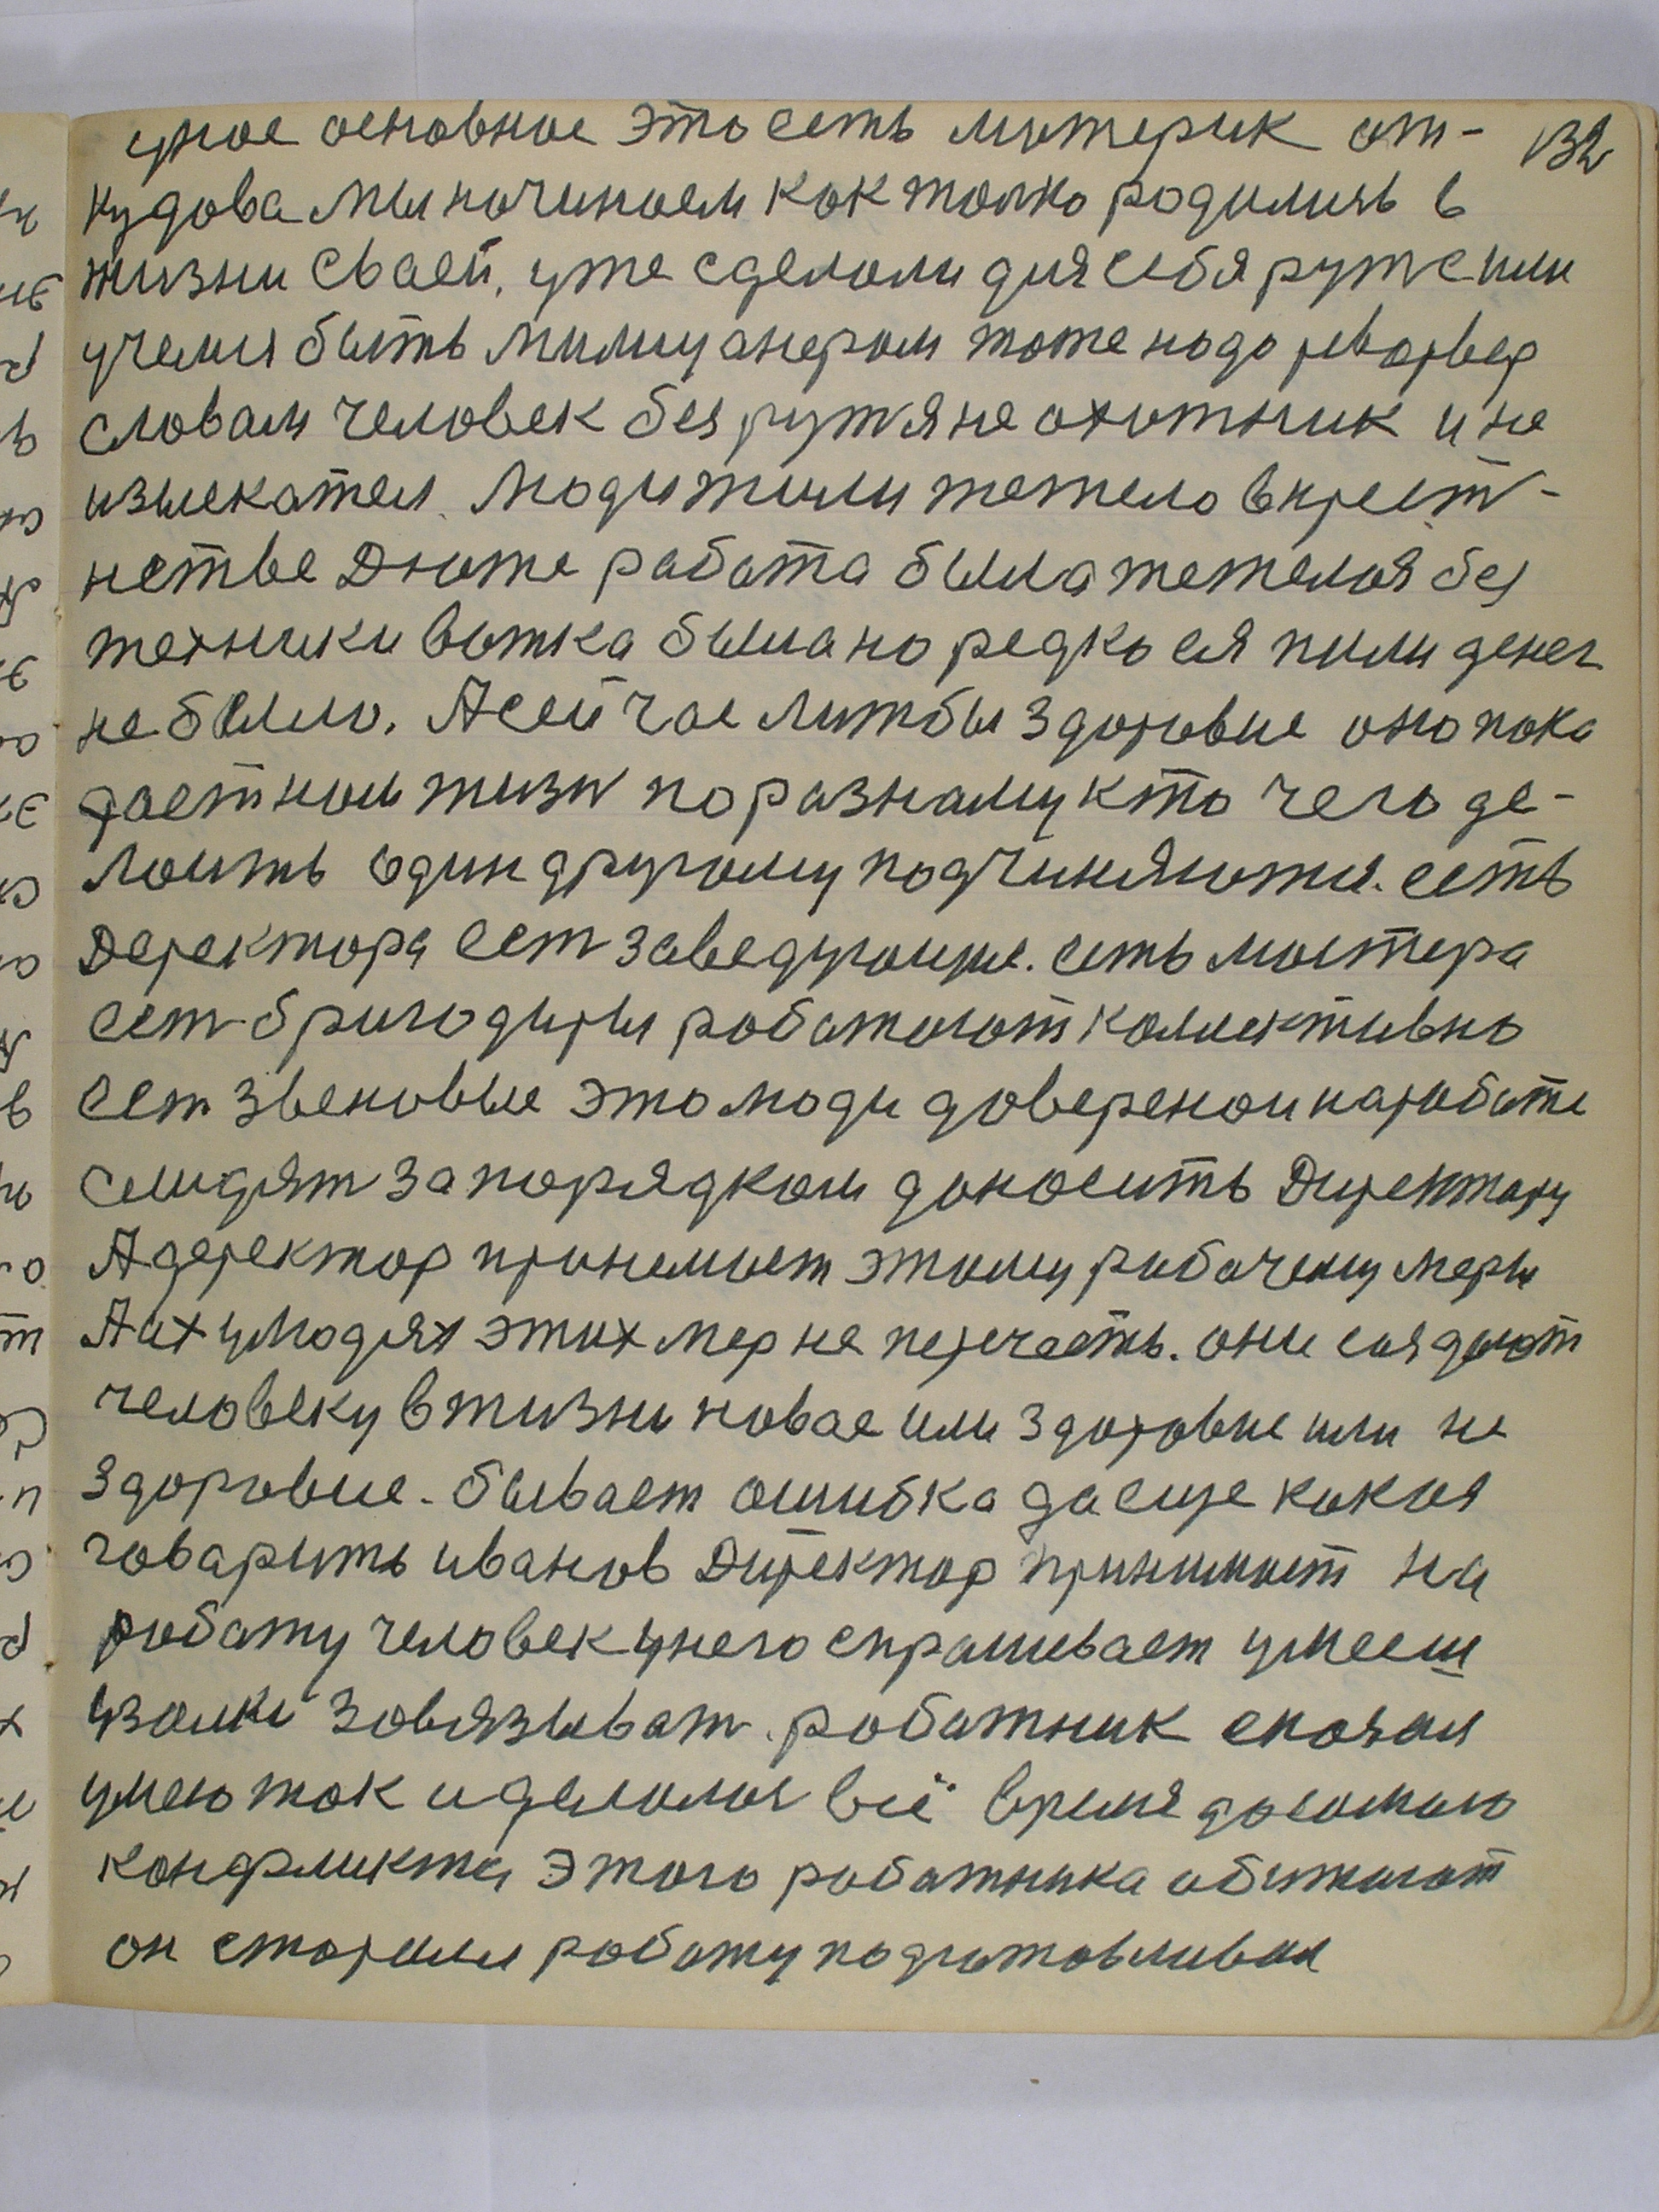 умое основное это есть митерик от- 132
кудова мы ночиноем кок толко родились в
жизни сваей, уже сделоли для себя ружё или
учемся быть милицанером тоже надо револвер
словам человек без ружя не охотник и не
изыскател. Люди жили тежело в крест-
нстве Дюже работа была тежелоя без
техники вотка была но редко ея пили денег
не было. А сейчас литбы здоровие оно пока
дает ном жизн по разнаму кто чего де-
лоить один другому подчиняютия. есть
Деректора ест заведующие. есть мостера
ест бригодиры роботоют коллективно
ест звеновые это люди довереной на роботе
смидят за порядком доносить Директору
А деректор принемоет этому робочему меры
А их у людях этих мер не перечесть. они создоют
человеку в жизни новае или здоровие или не
здоровие. бывает ошибка да еще какоя
говарить иванов Директор принимоет на
роботу человек у него спрашивает умееш
узолки зовязыват. роботник сказал
умею ток и делолоя всё время до сомого
конфликта этого роботника обижоют
он стораля роботу подготовливал